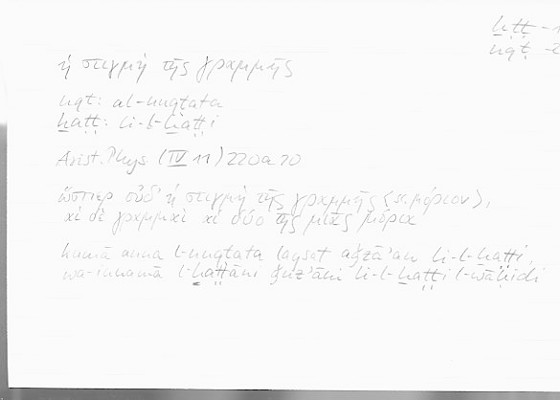 ḫṭṭ – 1
nqṭ – 2
ἡ στιγμὴ τῆς γραμμῆς
nqṭ: al-nuqṭata
ḫaṭṭ: li-l-ḫaṭṭi
Arist. Phys (IV 11) 220a20
ὥσπερ οὐδ᾽ ἡ στιγμὴ τῆς γραμμῆς (sc. μόριον),
αἱ δὲ γραμμαὶ αἱ δύο τῆς μιᾶς μόρια
kamā anna l-nuqṭata laysat aǧzāʾan li-l-ḫaṭṭi,
wa-innamā l-ḫaṭṭāni ǧuzʾāni li-l-ḫaṭṭi l-wāḥidi